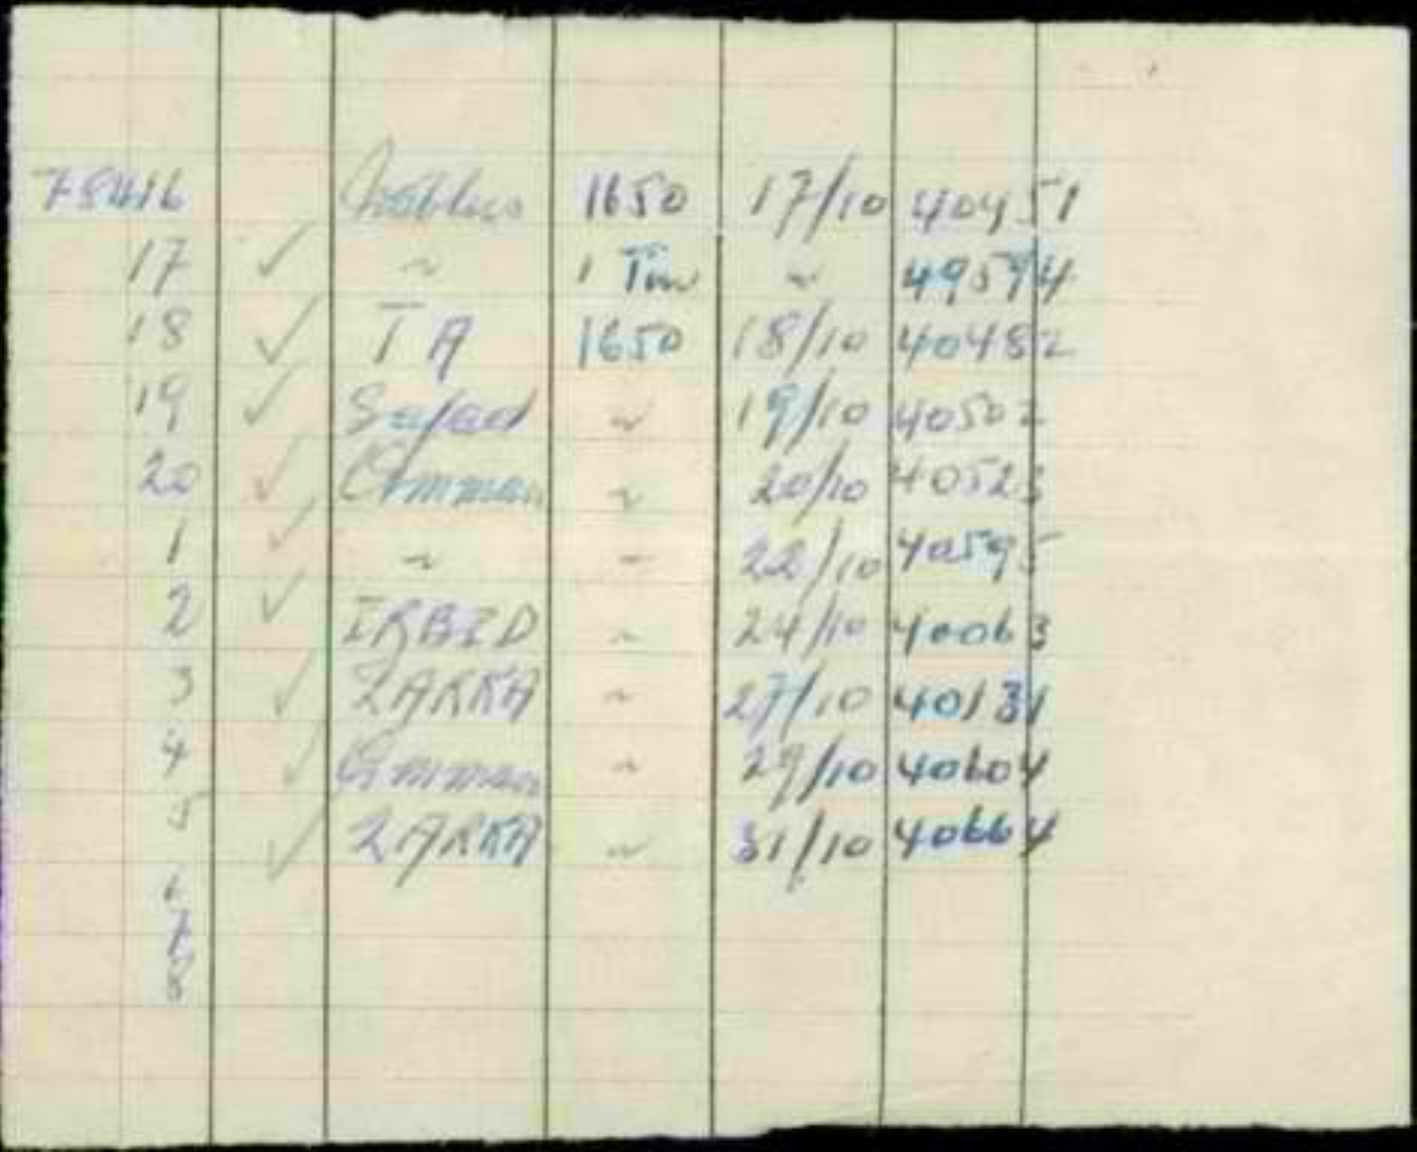 75416 Nablus 1650 17/10 40451
17 ✓ ~ 1 Tin ~ 49594
18 ✓ T A 1650 18/10 40482
19 ✓ Safad ~ 19/10 40502
20 ✓ Amman ~ 20/10 40523
1 ✓ ~ ~ 22/10 40595
2 ✓ IRBID ~ 24/10 40063
3 ✓ ZARKA ~ 27/10 40131
4 ✓ Amman ~ 29/10 40604
5 ✓ ZARKA ~ 31/10 40664
6
7
8